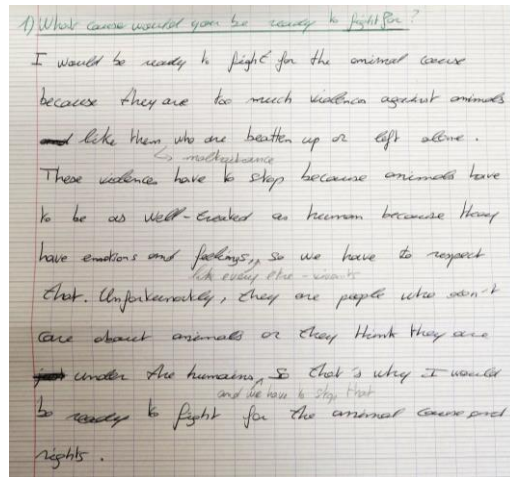 1) What cause would you be ready to fight for ?
I would be ready to fight for the animal cause
because they are too much violences against animals
like them who are beatten up or left alone .
↳ maltraitance
These violences have to stop because animals have
to be as well-treated as human because they
have emotions and feelings,, so we have to respect
like every être-vivants
that. Unfortunately, they are people who don't
care about animals or they think they are
under the humains, so that's why I would
and we have to stop that
be ready to fight for the animal cause and
rights .